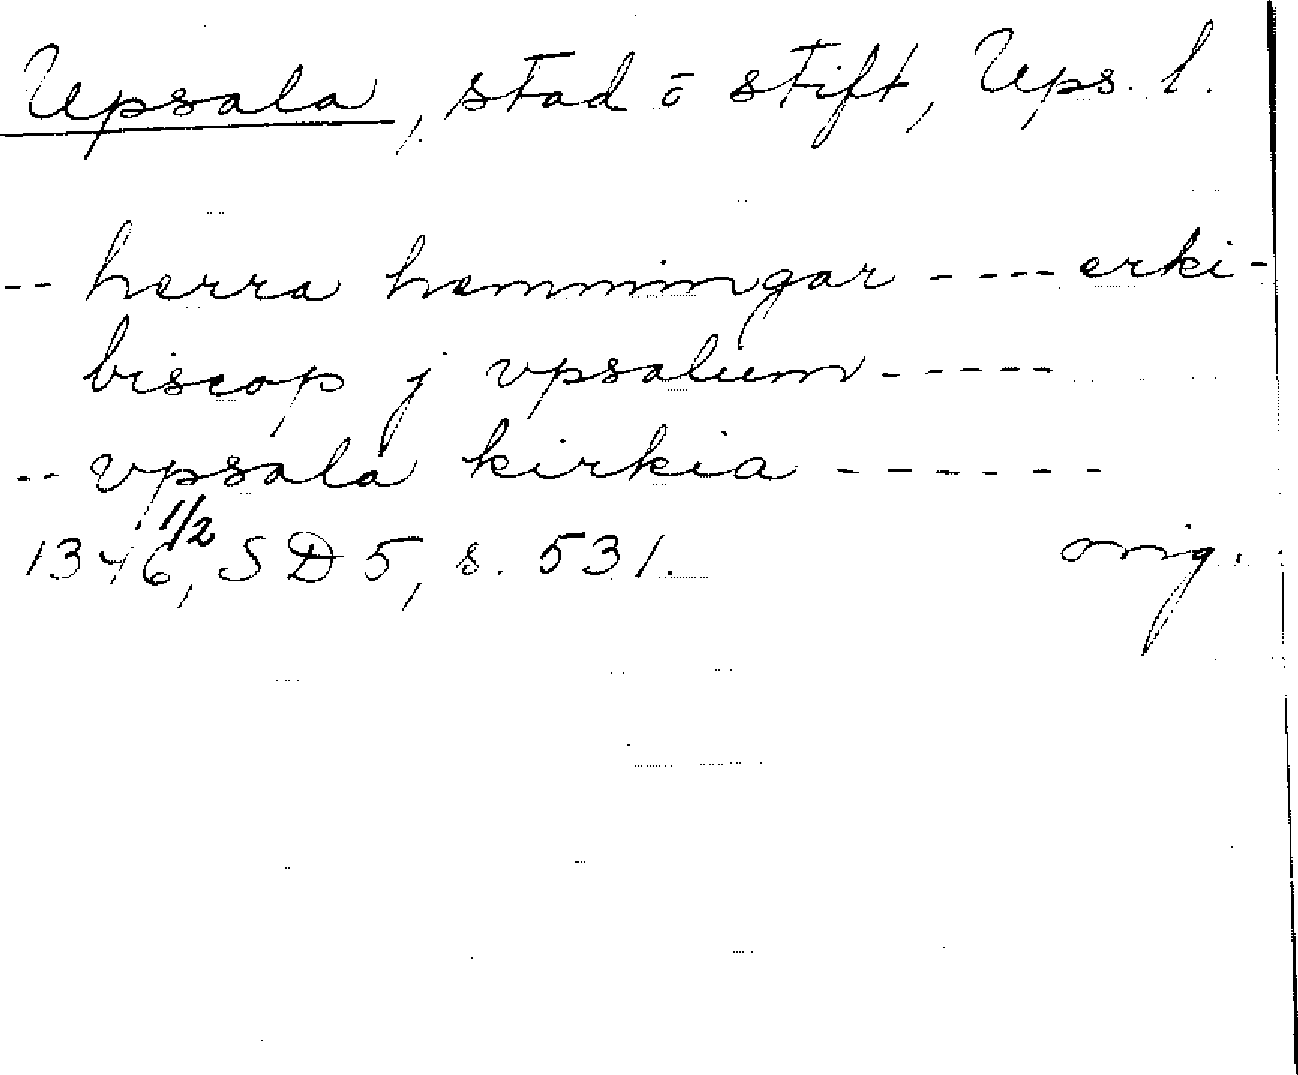 Upsala, stad o stift, Ups. l.
-- herra hemmingar ---- erki-
biscop j vpsalum -----
-- vpsala kirkia ------
1346 1/2, SD 5, s. 531. orig.